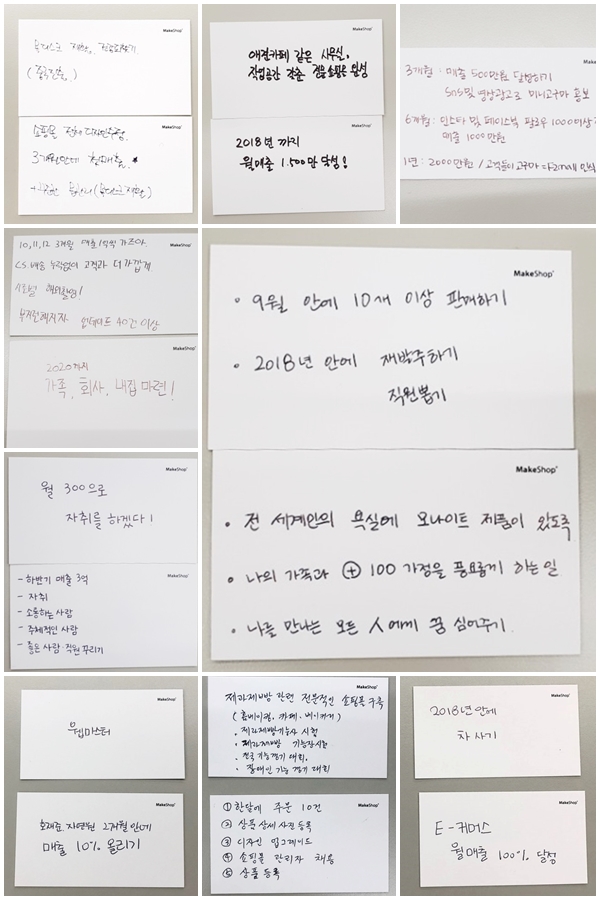 MakeShop
(중국진출.)
MakeShop
쇼핑몰 전체 디자인수정.
3개월안에 천매출. ★
MakeShop
애견카페 같은 사무실,
작업공간 갖춘 겸용 쇼핑몰 완성
MakeShop
2018년 까지
월매출 1.500만 달성!
3개월 : 매출 500만원 달성하기
SNS 및 영상광고로 미니고구마 홍보
6개월 : 인스타 및 페이스북 팔로우 1000이상
매출 1000만원
1년 : 2000만원 / 고객들이 고구마
MakeShop
10, 11, 12 3개월 매출 1억씩 가즈아
CS. 배송 누락없이 고객과 더 가깝게
업데이트 40건 이상
MakeShop
2020까지
가족, 회사, 내집 마련!
MakeShop
• 9월 안에 10개 이상 판매하기
• 2018년 안에 재발주하기
직원뽑기
MakeShop
• 전 세계인의 욕실에 모나이트 제품이 있도록
• 나의 가족과 + 100 가정을 풍요롭게 하는 일
• 나를 만나는 모든 人에게 꿈 심어주기.
MakeShop
월 300으로
자취를 하겠다!
MakeShop
- 하반기 매출 3억
- 자취
- 소통하는 사람
- 주체적인 사람
- 좋은 사람. 직원 꾸리기
MakeShop
웹마스터
MakeShop
2개월 안에
매출 10% 올리기
MakeShop
제과제빵 관련 전문적인 쇼핑몰 구축
(홈베이킹. 카페. 베이커리)
• 제과제빵기능사 시험
• 제과제빵 기능장시험
• 전국기능경기 대회.
• 장애인기능 경기 대회
MakeShop
① 한달에 주문 10건
② 상품 상세 사진 등록
③ 디자인 업그레이드
④ 쇼핑몰 관리자 채용
⑤ 상품 등록
MakeShop
2018년 안에
차 사기
MakeShop
E-커머스
월매출 100% 달성